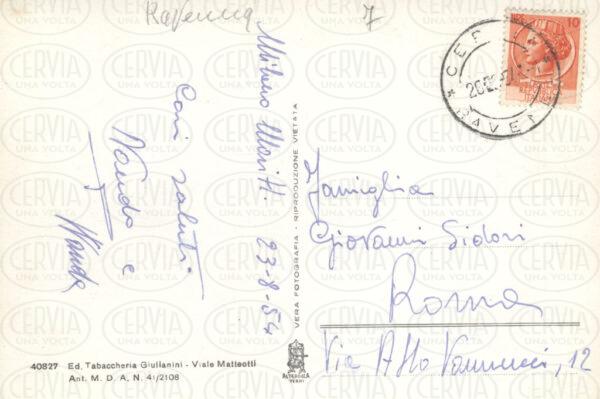 Ravenna
7
Milano Maritt. 23-8-54
Cari saluti
Nando e
Wanda
VERA FOTOGRAFIA - RIPRODUZIONE VIETATA
10
CER
RAVEN
Famiglia
Giovanni Sidori
Roma
Via Vannucci, 12
40827 Ed. Tabaccheria Giulianini - Viale Matteotti
Ant. M. D. A. N. 41/2108
CERVIA
UNA VOLTA